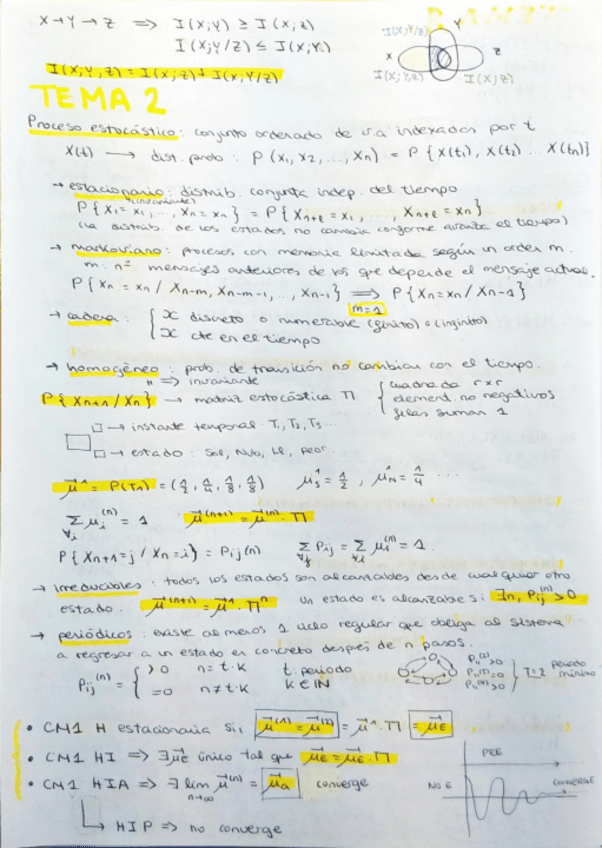 X → Y → Z ⟹ I(X;Y) ≥ I(X;Z)
I(X;Y/Z) ≤ I(X;Y)
I(X;Y,Z) = I(X;Z) + I(X;Y/Z)
I(X;Y/Z) Y
X Z
I(X;Y,Z) I(X;Z)
TEMA 2
Proceso estocástico: conjunto ordenado de v.a indexados por t
X(t) → dist. prob: P(x1, x2, ..., xn) = P{X(t1), X(t2) ... X(tn)}
→ estacionario: distrib. conjunta indep. del tiempo
(invariante)
P{X1 = x1, ..., Xn = xn} = P{X1+l = x1, ..., Xn+l = xn}
(la distrib. de los estados no cambia conforme avanza el tiempo)
→ markoviano: procesos con memoria limitada según un orden m.
m: nº mensajes anteriores de los que depende el mensaje actual.
P{Xn = xn / Xn-m, Xn-m-1, ..., Xn-1} ⟹ P{Xn = xn / Xn-1}
m=1
→ cadena: { X discreto o numerable (finito) o (infinito)
X cte en el tiempo
→ homogéneo: prob. de transición no cambian con el tiempo.
" ⟹ invariante
P{Xn+1 / Xn} → matriz estocástica Π { cuadrada r×r
element. no negativos
filas suman 1
□ → instante temporal: T1, T2, T3...
□ → estado: Sol, Nub, LL, Peor.
μ¹ = P(T1) = (1/2, 1/4, 1/8, 1/8) μS¹ = 1/2, μN¹ = 1/4 ...
∑∀i μi(n) = 1 μ(n+1) = μ(n) · Π
P{Xn+1 = j / Xn = i} = Pij(n) ∑∀j Pij = ∑∀i μi(n) = 1.
→ Irreducibles: todos los estados son alcanzables desde cualquier otro
estado. μ(n+1) = μ¹ · Πⁿ un estado es alcanzable si ∃n, Pij(n) > 0
→ periódicos: existe al menos 1 ciclo regular que obliga al sistema
a regresar a un estado en concreto después de n pasos.
Pij(n) = { >0 n = t·k t: periodo
=0 n ≠ t·k k ∈ ℕ
} T=2 periodo
mínimo
• CM1 H estacionaria si, μ(1) = μ(2) = μ¹ · Π = μE
• CM1 HI ⟹ ∃ μE único tal que μE = μE · Π
• CM1 HIA ⟹ ∃ lim n→∞ μ(n) = μa converge
↳ HIP ⟹ no converge
PEE
NO E CONVERGE